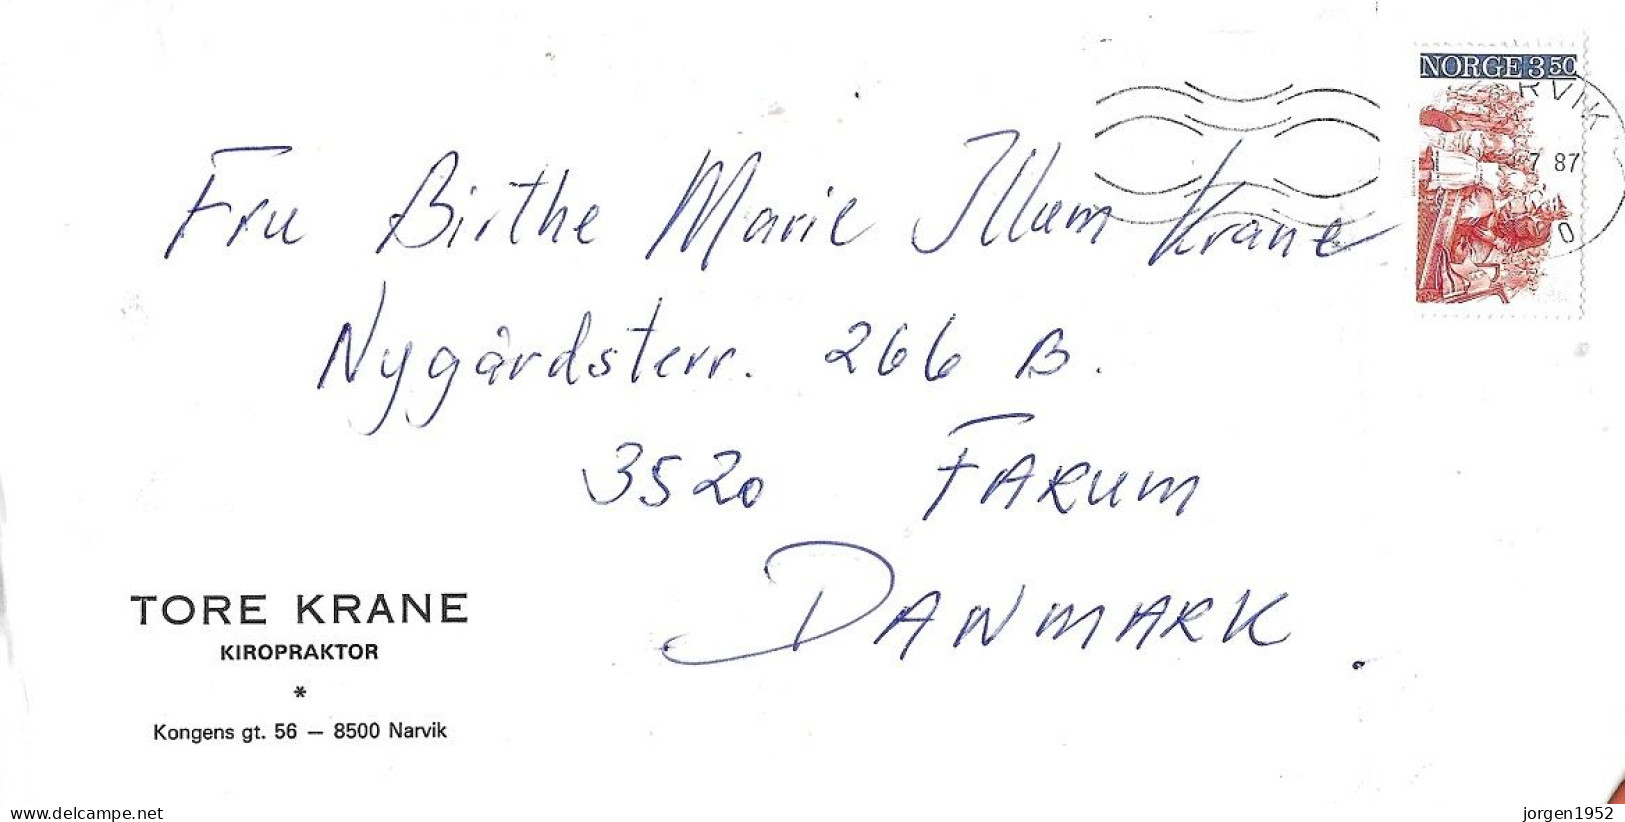 NORGE 350
RVIK
7 87
Fru Birthe Marie Illum Krane
Nygårdsterr. 266 B.
3520 FARUM
DANMARK.
TORE KRANE
KIROPRAKTOR
*
Kongens gt. 56 — 8500 Narvik
www.delcampe.net
jorgen1952